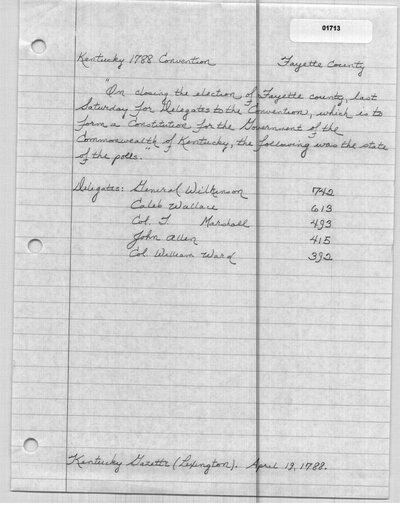 01713
Kentucky 1788 Convention Fayette County
"On closing the election of Fayette county, last
Saturday for Delegates to the Convention, which is to
form a Constitution for the Government of the
Commonwealth of Kentucky, the following was the state
of the polls.
Delegates: General Wilkinson 742
Caleb Wallace 613
Col. T. Marshall 493
John Allen 415
Col. William Ward 392
Kentucky Gazette (Lexington). April 19, 1788.